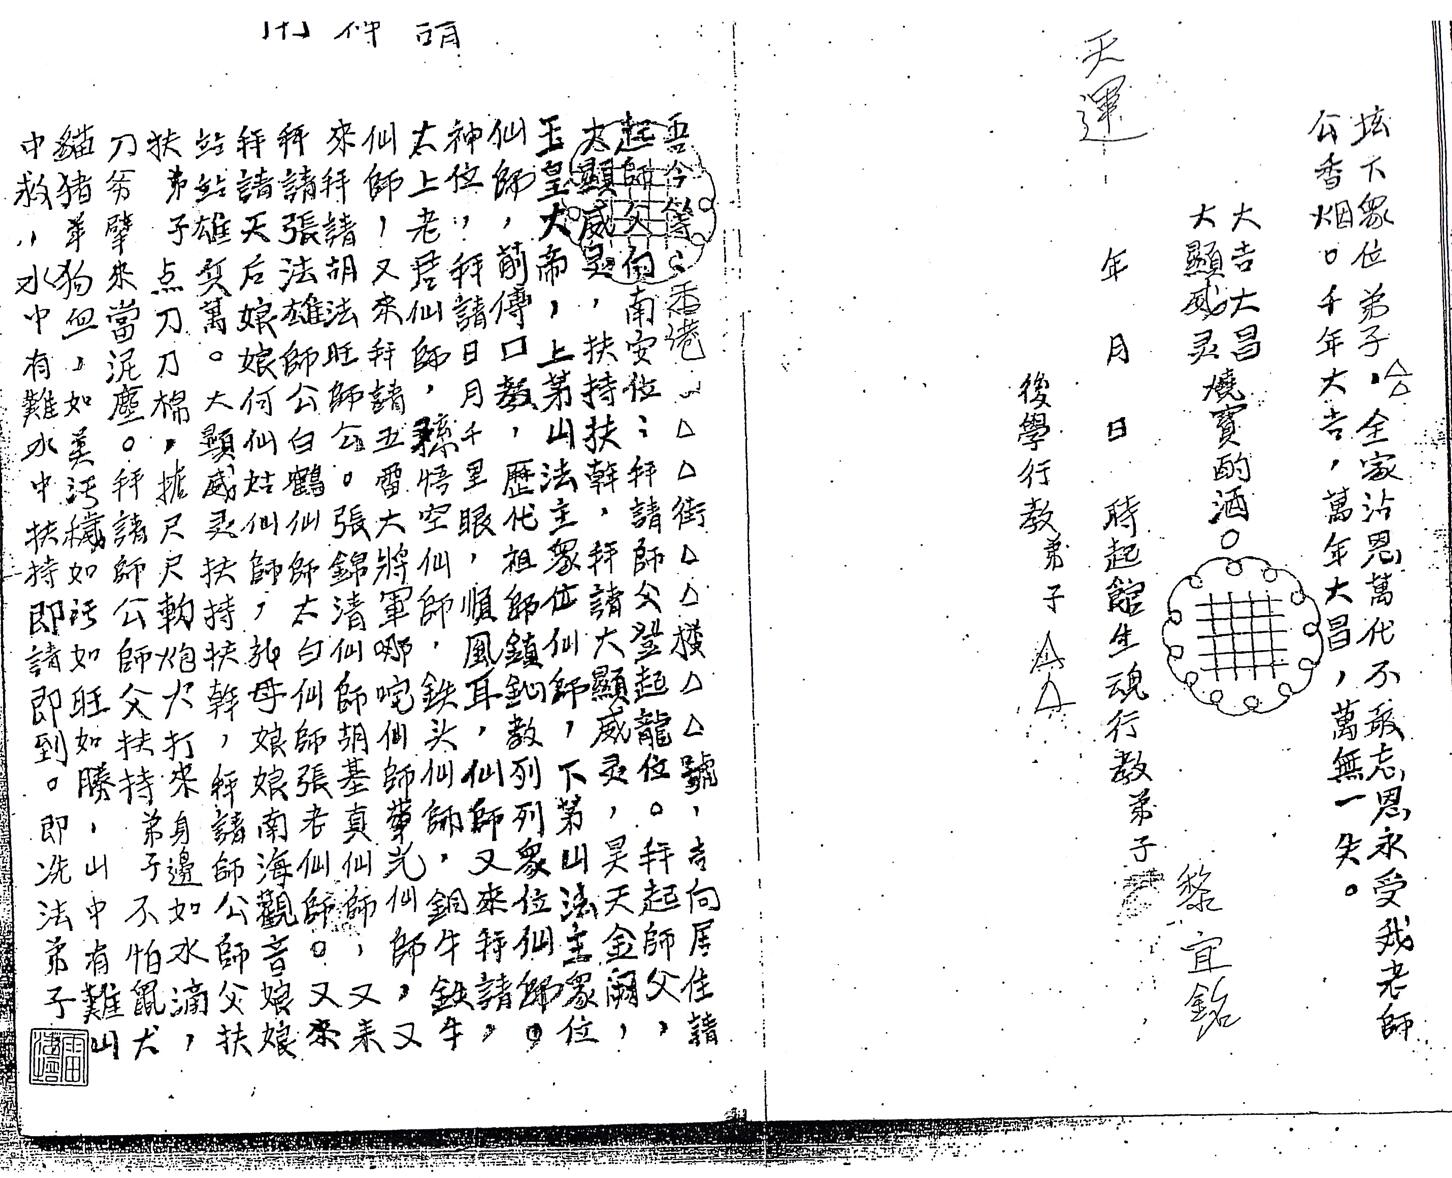 壇下眾位弟子△△，全家沾恩萬代不敢忘恩永受我老師
公香烟。千年大吉，萬年大昌，萬無一失。
大吉大昌燒寶酌酒。
大顯威灵
天運　年　月　日　時起館生魂行教弟子　黎宜銘
後學行教弟子△△
吾今等：香港、△△街△△△樓△△號，吉向居住請
起師父向南安位：秤請師父登起龍位。秤起師父，
大顯威灵，扶持扶幹，秤請大顯威灵，昊天金闕，
玉皇大帝，上茅山法主眾位仙師，下茅山法主眾位
仙師，前傳口教，歷代祖師鎮訕教列列眾位仙師。
神位，秤請日月千里眼，順風耳，仙師又來秤請，
太上老君仙師，孫悟空仙師，鉄头仙師，銅牛鉄牛
仙師，又來秤請五雷大將軍哪咤仙師華光仙師，又
來秤請胡法旺師公。張錦清仙師胡基真仙師，又来
秤請張法雄師公白鶴仙師太白仙師張老仙師。又來
秤請天后娘娘何仙姑仙師， 母娘娘南海觀音娘娘
站站雄兵萬。大顯威灵扶持扶幹，秤請師公師父扶
扶弟子点刀刀棉，搋尺尺軟炮火打來身邊如水滴，
刀斧擘來當泥塵。秤請師公師父扶持弟子不怕鼠犬
貓猪羊狗血，如 污穢如污如旺如勝，山中有難山
中救，水中有難水中扶持即請即到。即冼法弟子